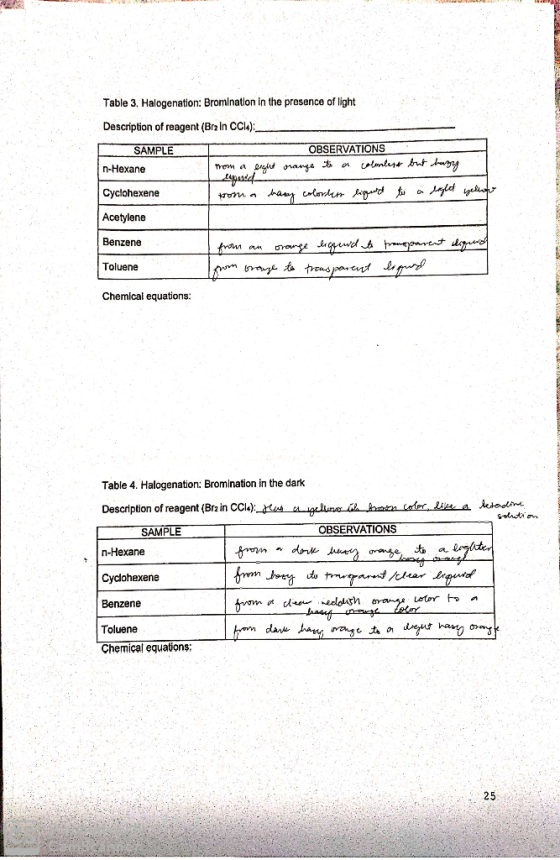 Table 3. Halogenation: Bromination in the presence of light
Description of reagent (Br2 in CCl4):
SAMPLE OBSERVATIONS
n-Hexane from a light orange to a colorless but hazy
liquid
Cyclohexene from a hazy colorless liquid to a light yellow
Acetylene
Benzene from an orange liquid to transparent liquid
Toluene from orange to transparent liquid
Chemical equations:
Table 4. Halogenation: Bromination in the dark
Description of reagent (Br2 in CCl4): Has a yellow brown color, like a
solution
SAMPLE OBSERVATIONS
n-Hexane from a dark hazy orange to a lighter
hazy orange
Cyclohexene from hazy to transparent/clear liquid
Benzene from a clear reddish orange color to a
hazy orange color
Toluene from dark hazy orange to a light hazy orange
Chemical equations:
25